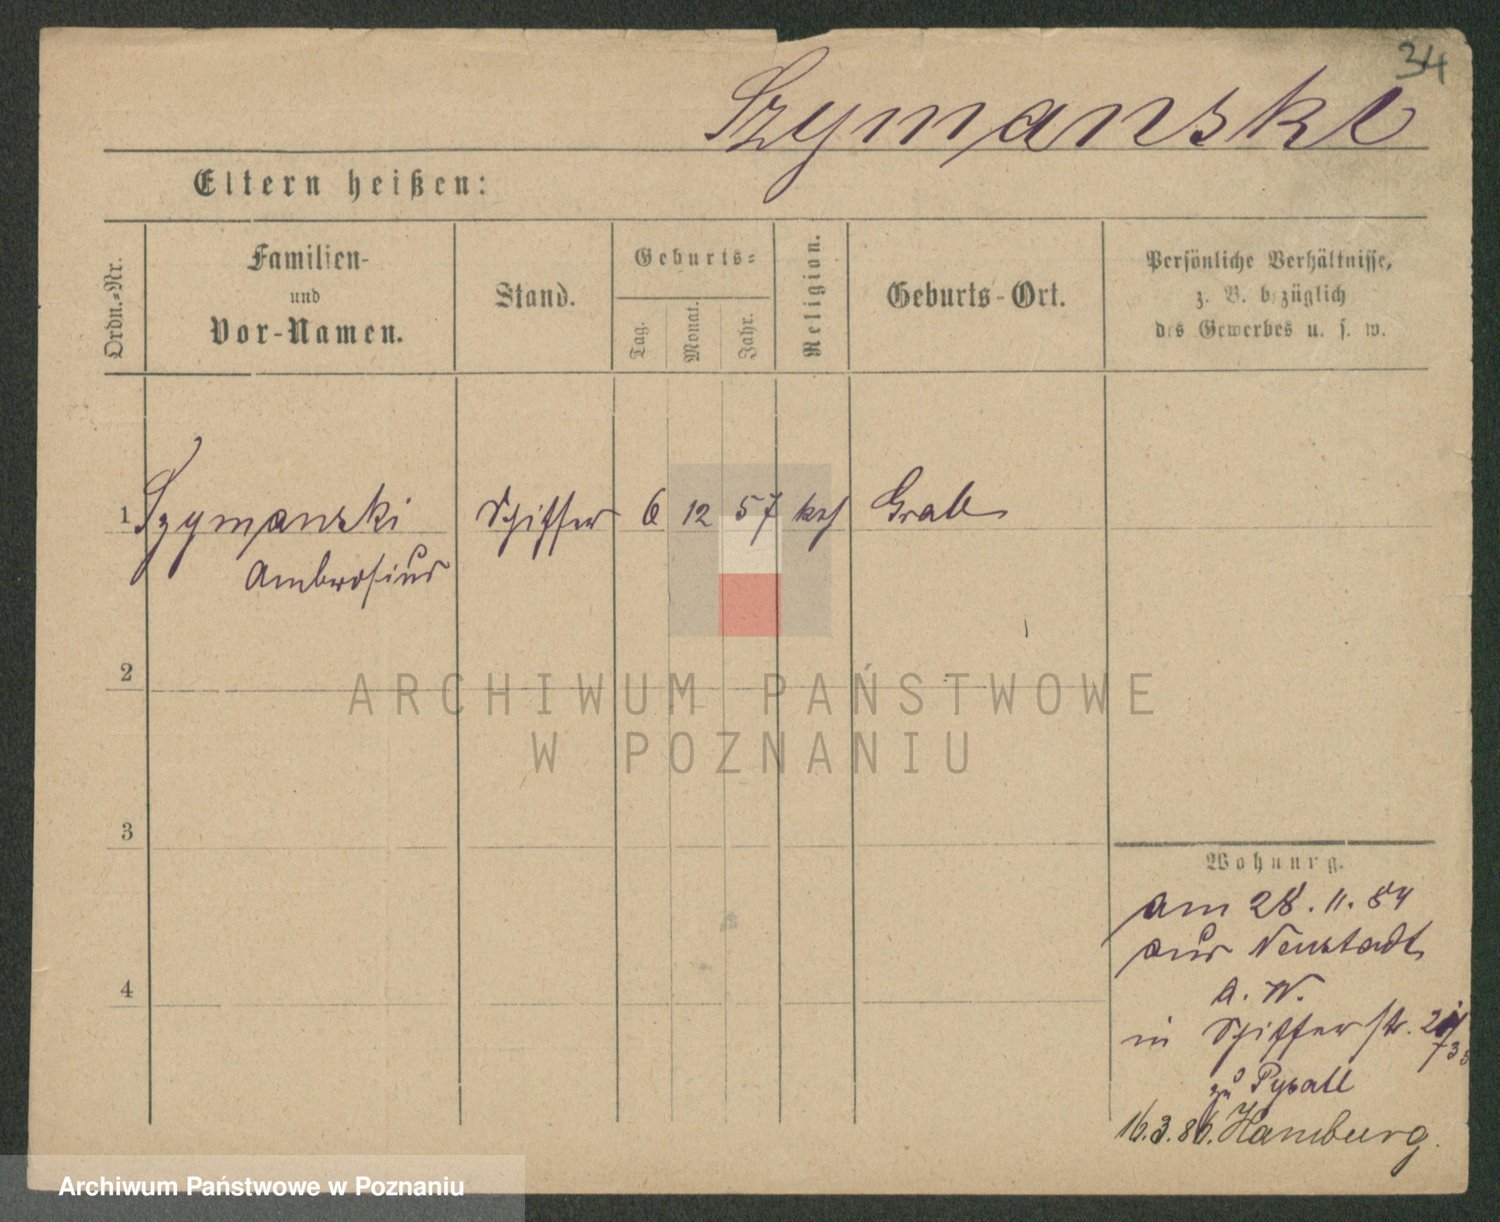 34
Szymanski
Eltern heißen:
Ordn.-Nr.
Familien-
und
Vor-Namen.
Stand.
Geburts-
Tag.
Monat.
Jahr.
Religion.
Geburts-Ort.
Persönliche Verhältnisse,
z. B. bezüglich
des Gewerbes u. s. w.
1 Szymanski Schiffer 6 12 57 kth Grab
Ambrosius
2
ARCHIWUM PAŃSTWOWE
W POZNANIU
3
4
Wohnung.
am 28. 11. 84
aus Neustadt
a. W.
in Schifferstr.
zu
16.3.86. Hamburg.
Archiwum Państwowe w Poznaniu